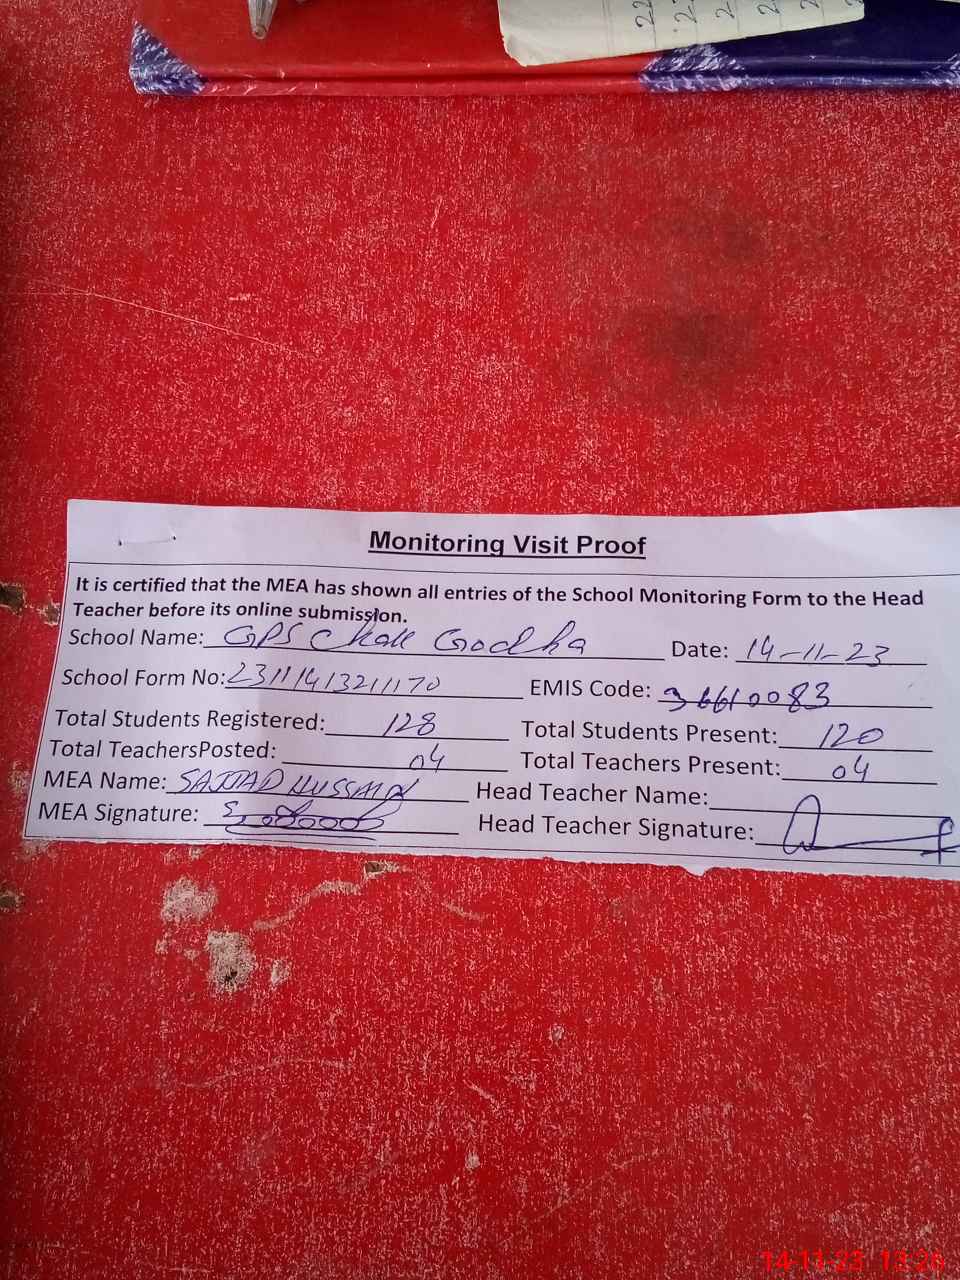 Monitoring Visit Proof
It is certified that the MEA has shown all entries of the School Monitoring Form to the Head
Teacher before its online submission.
School Name: GPS Chak Godha Date: 14-11-23
School Form No: 23111413211170 EMIS Code: 36610083
Total Students Registered: 128 Total Students Present: 120
Total TeachersPosted: 04 Total Teachers Present: 04
MEA Name: SAJJAD HUSSAIN Head Teacher Name:
MEA Signature: Head Teacher Signature:
14-11-23 13:26